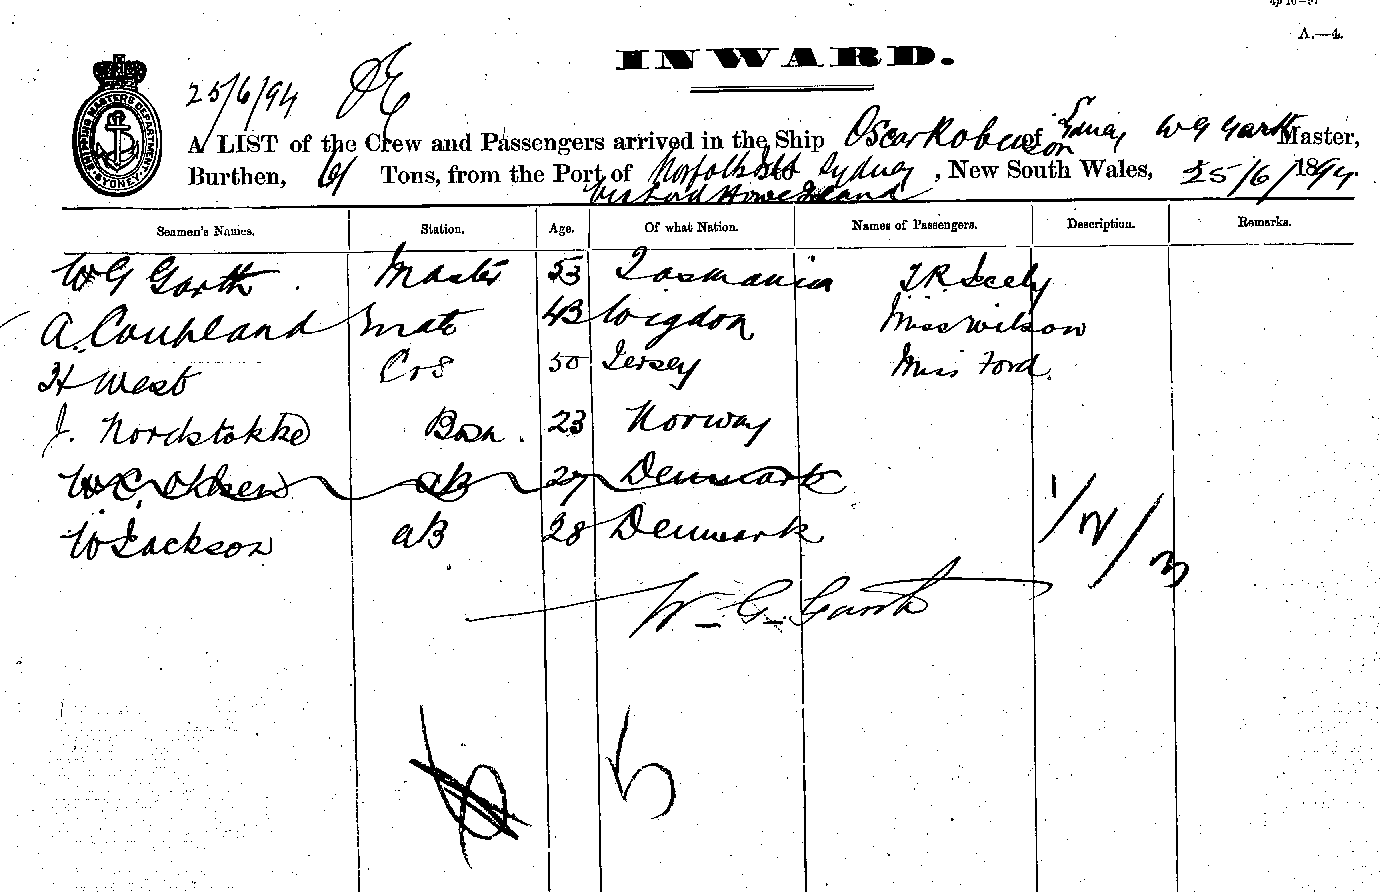 A.—4.
INWARD.
25/6/94
SHIPPING MASTERS DEPARTMENT SYDNEY
A LIST of the Crew and Passengers arrived in the Ship Oscar Robinson of Sydney W G Garth Master,
Burthen, 61 Tons, from the Port of Norfolk Isld to Sydney, New South Wales, 25/6/1894.
Lord Howe Island
Seamen's Names. Station. Age. Of what Nation. Names of Passengers. Description. Remarks.
W G Garth Master 53 Tasmania T. R. Seely
A. Coupland Mate 43 Wigdon Miss Wilson
H West 50 Jersey Miss Ford.
J. Nordstokke Bosn. 23 Norway
W. C. Ohlsen AB 27 Denmark
W Jackson AB 28 Denmark
1/2/3
W. G. Garth
5